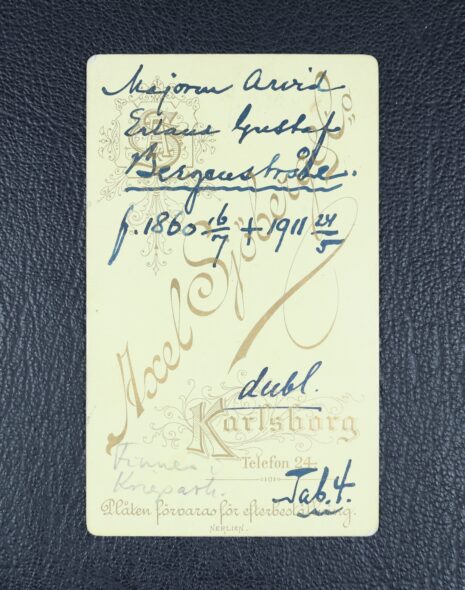 Majoren Arvid
Erland Gustaf
Bergenstråhle.
f. 1860 16/7 + 1911 24/5
Axel Sjöberg & Co.
dubl.
Karlsborg
Telefon 24.
Finnes i
Tab. 4.
Plåten förvaras för efterbeställning.
NERLIEN.